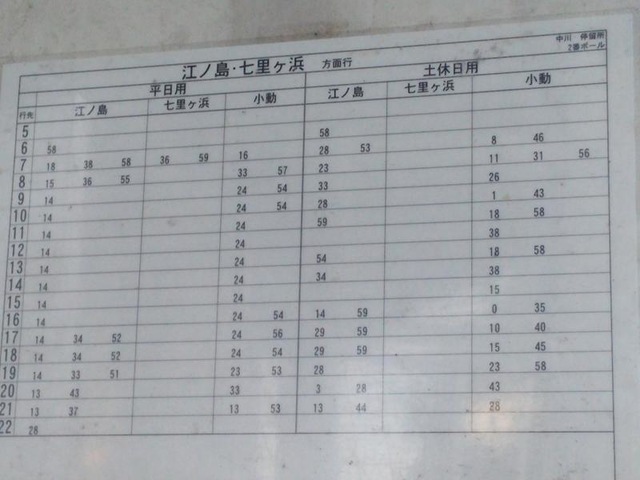 中川 停留所
2番ポール
江ノ島・七里ヶ浜 方面行
平日用 土休日用
行先 江ノ島 七里ヶ浜 小動 江ノ島 七里ヶ浜 小動
5
6 58 58
7 18 38 58 36 59 16 28 53 8 46
8 15 36 55 33 57 23 11 31 56
9 14 24 54 33 26
10 14 24 54 28 1 43
11 14 24 59 18 58
12 14 24 38
13 14 24 54 18 58
14 14 24 34 38
15 14 24 15
16 14 24 54 14 59 0 35
17 14 34 52 24 56 29 59 10 40
18 14 34 52 24 54 29 59 15 45
19 14 33 51 23 53 28 23 58
20 13 43 33 3 28 43
21 13 37 13 53 13 44 28
22 28